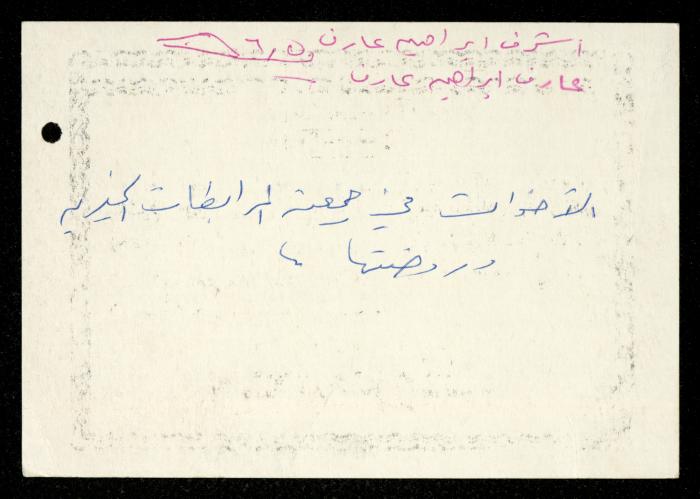 اشرف ابراهيم عارف
عارف ابراهيم عارف
الأخوات في جمعية المرابطات الخيرية
وروضتها